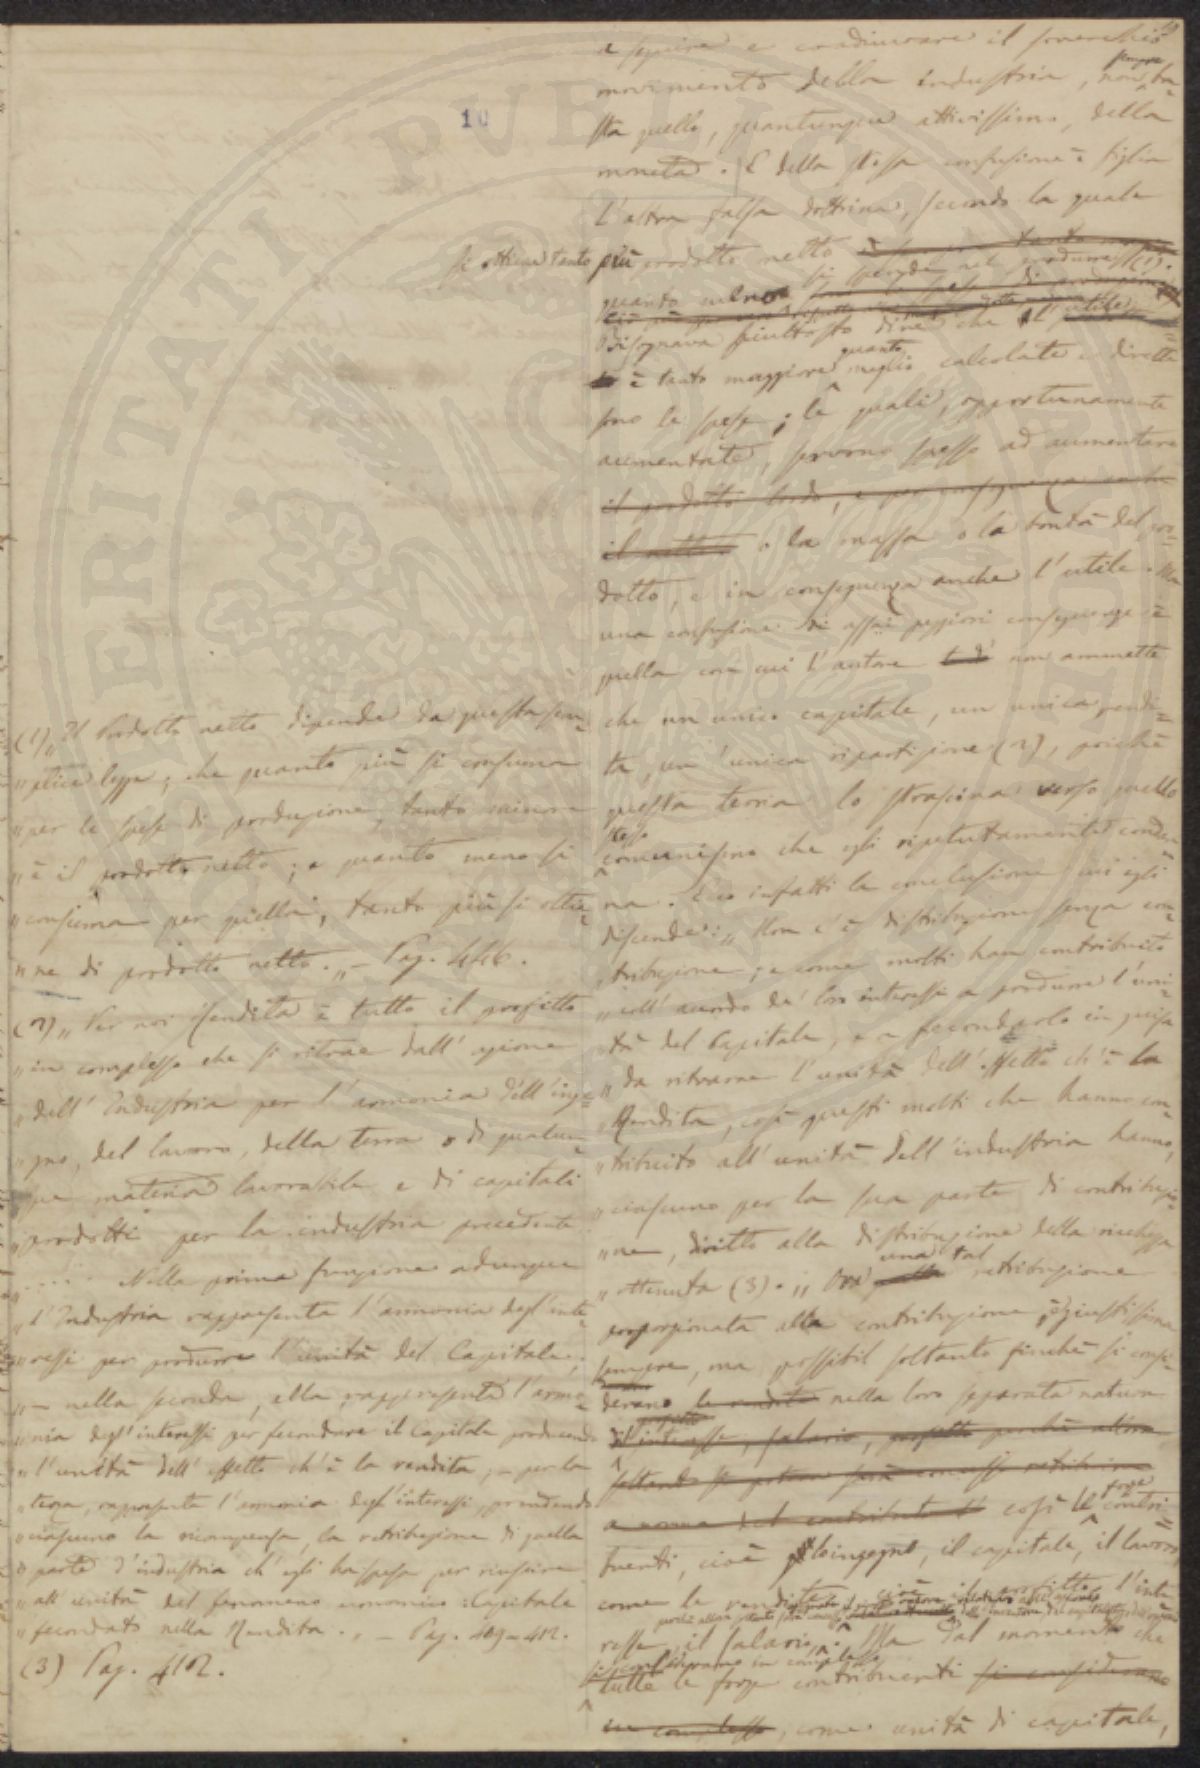 10
a seguire e coadiuvare il soverchio
movimento della industria, non sempre ba=
sta quello, quantunque attivissimo, della
moneta. E della stessa confusione è figlia
l'altra falsa dottrina, secondo la quale
si ottiene tanto più prodotto netto
quanto meno si spende nel produrre (1).
Bisognava piuttosto dire che l'utile
è tanto maggiore quanto meglio calcolate e dirette
sono le spese; le quali, opportunamente
aumentate, servono spesso ad aumentare
il prodotto lordo, e per conseguenza anche
il netto o la massa o la bontà del pro=
dotto, e in conseguenza anche l'utile. Ma
una confusione di assai peggiori conseguenze è
quella con cui l'autore non ammette
che un unico capitale, un'unica rendi=
ta, un'unica ripartizione (2), poichè
questa teoria lo strascina verso quello
stesso comunismo che egli ripetutamente condan=
na. Ecco infatti la conclusione cui egli
discende: „ Non c'è distribuzione senza con=
„ tribuzione; e come molti han contribuito
„ coll'accordo de' loro interessi a produrre l'uni=
„ tà del Capitale, e a fecondarlo in guisa
„ da ritrarne l'unità dell'effetto ch'è la
„ Rendita, così questi molti che hanno con=
„ tribuito all'unità dell'industria hanno,
„ ciascuno per la sua parte di contribuzio=
„ ne, diritto alla distribuzione della ricchezza
„ ottenuta (3). „ Ora una tal retribuzione
proporzionata alla contribuzione, è giustissima
sempre, ma possibil soltanto finchè si consi=
derano le rendite nella loro separata natura
d'interesse, salario, profitto perchè allora
soltanto si potrà
a norma del contributo così le forze contri=
buenti, cioè l'ingegno, il capitale, il lavoro,
come le rendite, cioè il profitto, l'inte
resse, il salario. Ma dal momento che
si considerano in complesso
tutte le forze contribuenti si considerano
in complesso, come unità di capitale,
(1) „ Il Prodotto netto dipende da questa sem=
„ plice legge; che quanto più si consuma
„ per le spese di produzione, tanto minore
„ è il prodotto netto; e quanto meno si
„ consuma per quella, tanto più si ottie=
„ ne di prodotto netto. „ — Pag. 446.
(2) „ Per noi Rendita è tutto il profitto
„ in complesso che si ritrae dall'azione
„ dell'Industria per l'armonia dell'inge=
„ gno, del lavoro, della terra o di qualun=
que materia lavorabile e di capitali
„ prodotti per la industria precedente
„ ..... Nella prima funzione adunque
„ l'Industria rappresenta l'armonia degl'inte=
„ ressi per produrre l'unità del Capitale;
„ — nella seconda, ella rappresenta l'armo=
„ nia degl'interessi per fecondare il Capitale producendo
„ l'unità dell'effetto ch'è la rendita; — per la
„ terza, rappresenta l'armonia degl'interessi, prendendo
„ ciascuno la ricompensa, la retribuzione di quella
„ parte d'industria ch'egli ha spesa per riuscire
„ all'unità del fenomeno economico: Capitale
„ fecondato nella Rendita. „ — Pag. 409–412.
(3) Pag. 412.